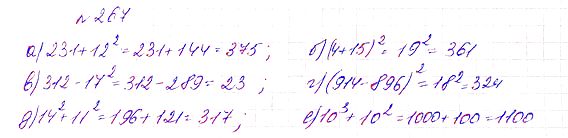 № 267
а) 231+12²=231+144=375; б) (4+15)²=19²=361
в) 312-17²=312-289=23; г) (914-896)²=18²=324
д) 14²+11²=196+121=317; е) 10³+10²=1000+100=1100